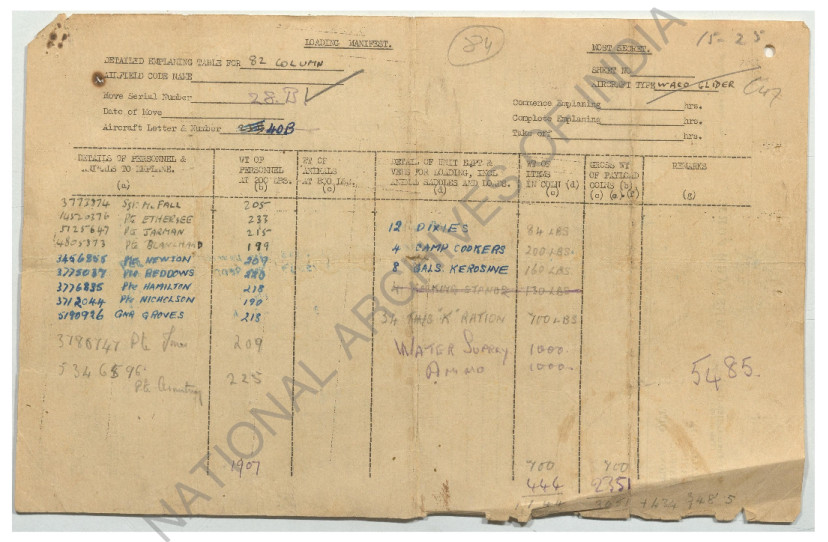 LOADING MANIFEST.
84
MOST SECRET.
15-25
DETAILED EMPLANING TABLE FOR 82 COLUMN
AILFIELD CODE NAME
SHEET NO.
AIRCRAFT TYPE WACO GLIDER C47
Move Serial Number 28.B
Commence Emplaning hrs.
Date of Move
Complete Emplaning hrs.
Aircraft Letter & Number 40B
Take off hrs.
DETAILS OF PERSONNEL & ANIMALS TO EMPLANE. (a)
WT OF PERSONNEL AT 200 LBS. (b)
WT OF ANIMALS AT 800 LBS. (c)
DETAIL OF UNIT EQPT & VEHS FOR LOADING, INCL ANIMAL SADDLES AND LOADS. (d)
WT OF ITEMS IN COLN (d) (e)
GROSS WT OF PAYLOAD COLNS (b) (c) (e) (f)
REMARKS (g)
3773974 Sgt. McFALL 205
14520276 Pte ETHERSEE 233
5125647 Pte JARMAN 215
12 DIXIES 84 LBS
4805373 Pte BLANCHARD 199
3456855 Pte NEWTON 209
4 CAMP COOKERS 200 LBS.
3775037 Pte BEDDOWS 220
8 GALS. KEROSINE 160 LBS
3776835 Pte HAMILTON 218
130 LBS
3712044 Pte NICHOLSON 190
5190926 GNR GROVES 218
34 TINS "K" RATION 700 LBS
3780747 Pte 209
WATER SUPPLY 1000.
5346596 Pte Armstrong 225
AMMO 1000.
5485.
1907
700 700
444 2351
NATIONAL ARCHIVES OF INDIA